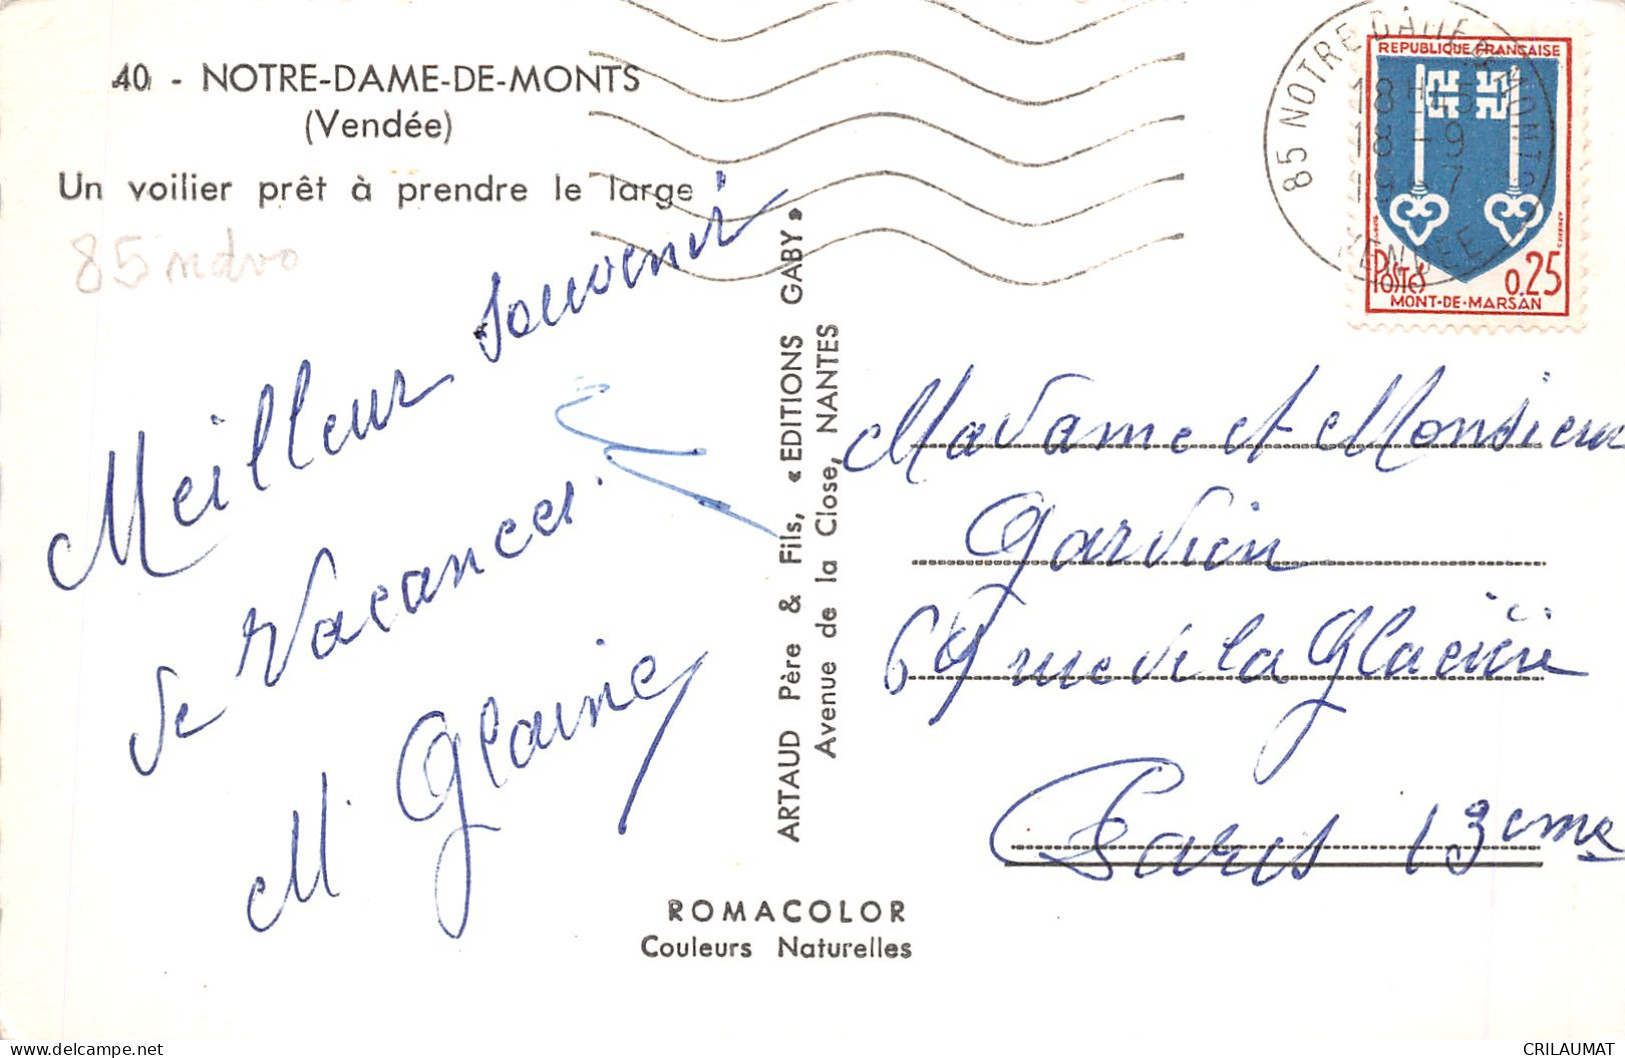 40 - NOTRE-DAME-DE-MONTS
(Vendée)
Un voilier prêt à prendre le large
85
Meilleur Souvenir
de Vacances.
M. Glaine
ARTAUD Père & Fils, « EDITIONS GABY »
Avenue de la Close, NANTES
ROMACOLOR
Couleurs Naturelles
85 NOTRE DAME DE MONTS
18 H
18 - 9
VENDEE
REPUBLIQUE FRANÇAISE
Postes 0.25
MONT-DE-MARSAN
Madame et Monsieur
Garvien
69 rue de la Glacière
Paris 13eme
delcampe.net
CRILAUMAT